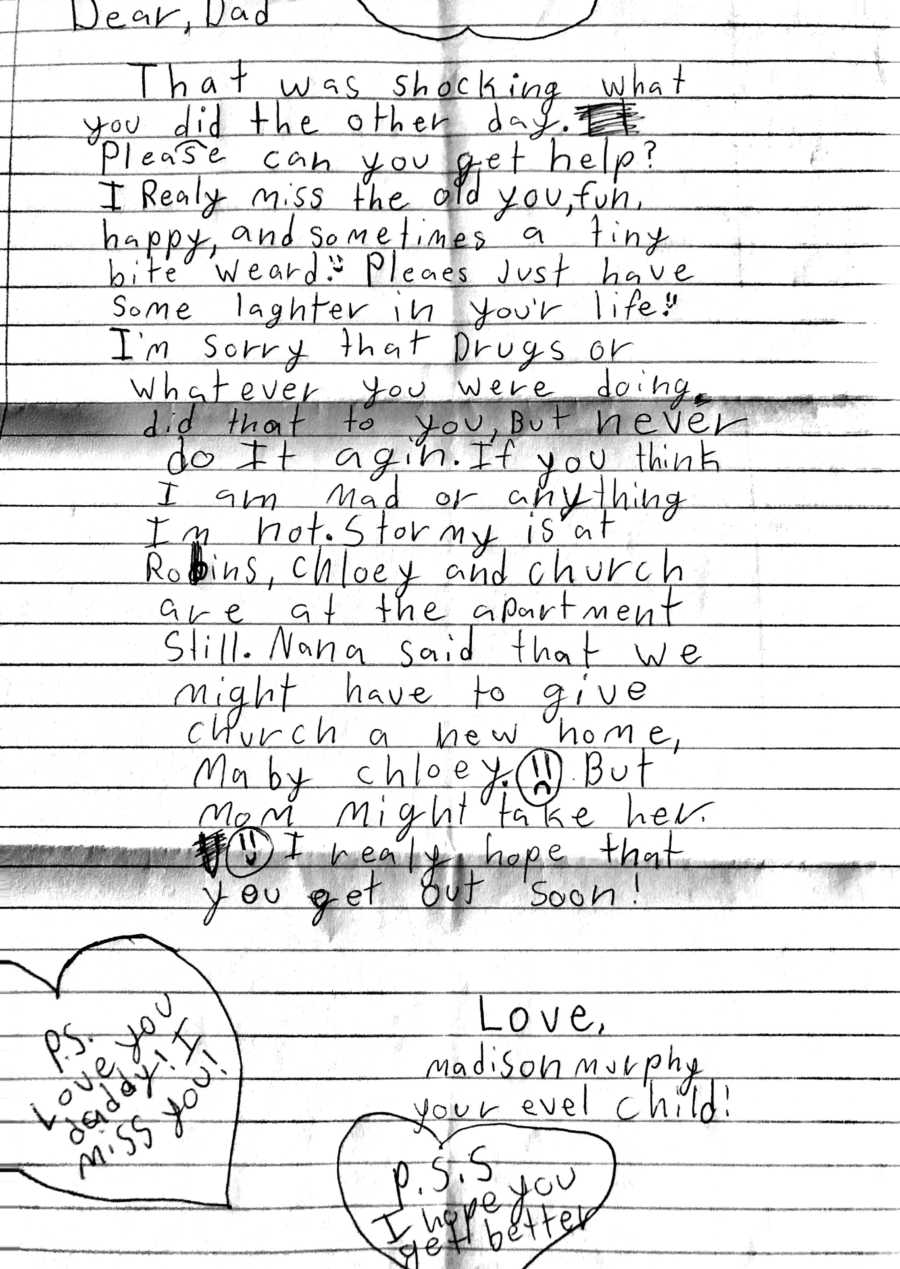 Dear, Dad
That was shocking what
you did the other day.
Please can you get help?
I Realy miss the old you, fun,
happy, and sometimes a tiny
bite weard. Pleaes Just have
some laghter in you'r life.
I'm sorry that Drugs or
whatever you were doing,
did that to you, But never
do It agin. If you think
I am mad or anything
Im not. Stormy is at
Robins, Chloey and church
are at the apartment
Still. Nana said that we
might have to give
church a new home,
Maby chloey. But
mom might take her.
I realy hope that
you get out soon!
Love,
madison murphy
your evel child!
P.S.
Love you
daddy! I
miss you!
P.S.S
I hope you
get better